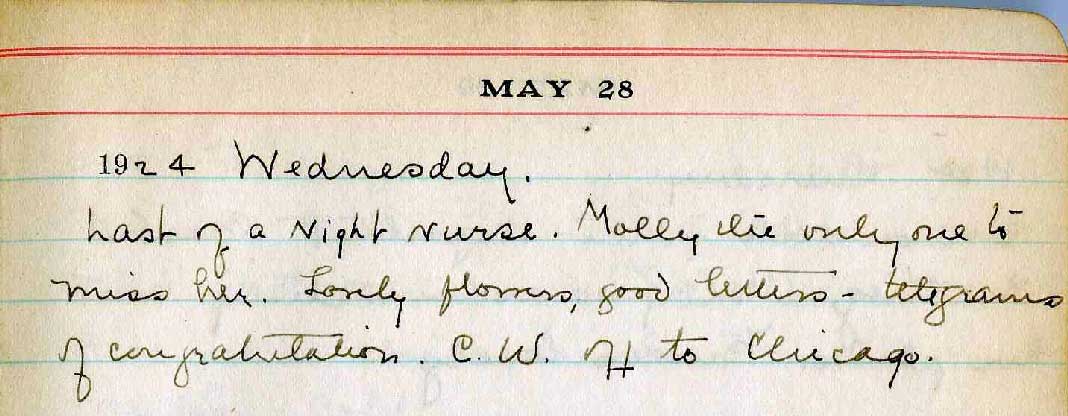 MAY 28
1924 Wednesday.
Last of a night nurse. Molly the only one to
miss her. Lovely flowers, good letters - telegrams
of congratulation. C. W. off to Chicago.